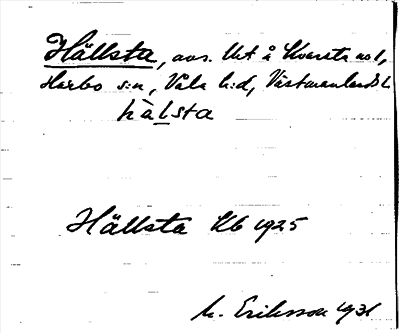 Hällsta, avs. Utå Kvarsta no 1,
Harbo s:n, Våla h:d, Västmanlands l.
hàlsta
Hällsta Kb 1925
M. Eriksson 1931